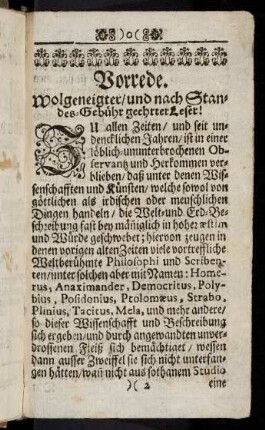 )o(
Vorrede.
Wolgeneigter/und nach Stan-
des-Gebühr geehrter Leser!
ZU allen Zeiten/ und seit un-
dencklichen Jahren/ ist in einer
löblich-ununterbrochenen Ob-
servantz und Herkommen ver-
blieben/ daß unter denen Wis-
senschafften und Künsten/ welche sowol von
göttlichen als irdischen oder menschlichen
Dingen handeln/ die Welt-und Erd-Be-
schreibung fast bey männiglich in hoher æstim
und Würde geschwebet; hiervon zeugen in
denen vorigen alten Zeiten viele vortreffliche
Weltberühmte Philosophi und Scriben-
ten/ unter solchen aber mit Namen: Home-
rus, Anaximander, Democritus, Poly-
bius, Posidonius, Ptolomæus, Strabo,
Plinius, Tacitus, Mela, und mehr andere/
so dieser Wissenschafft und Beschreibung
sich ergeben/ und durch angewandten unver-
drossenen Fleiß sich bemächtiget/ wessen
dann ausser Zweiffel sie sich nicht unterfan-
gen hätten/ wañ nicht aus sothanem Studio
)( 2 eine